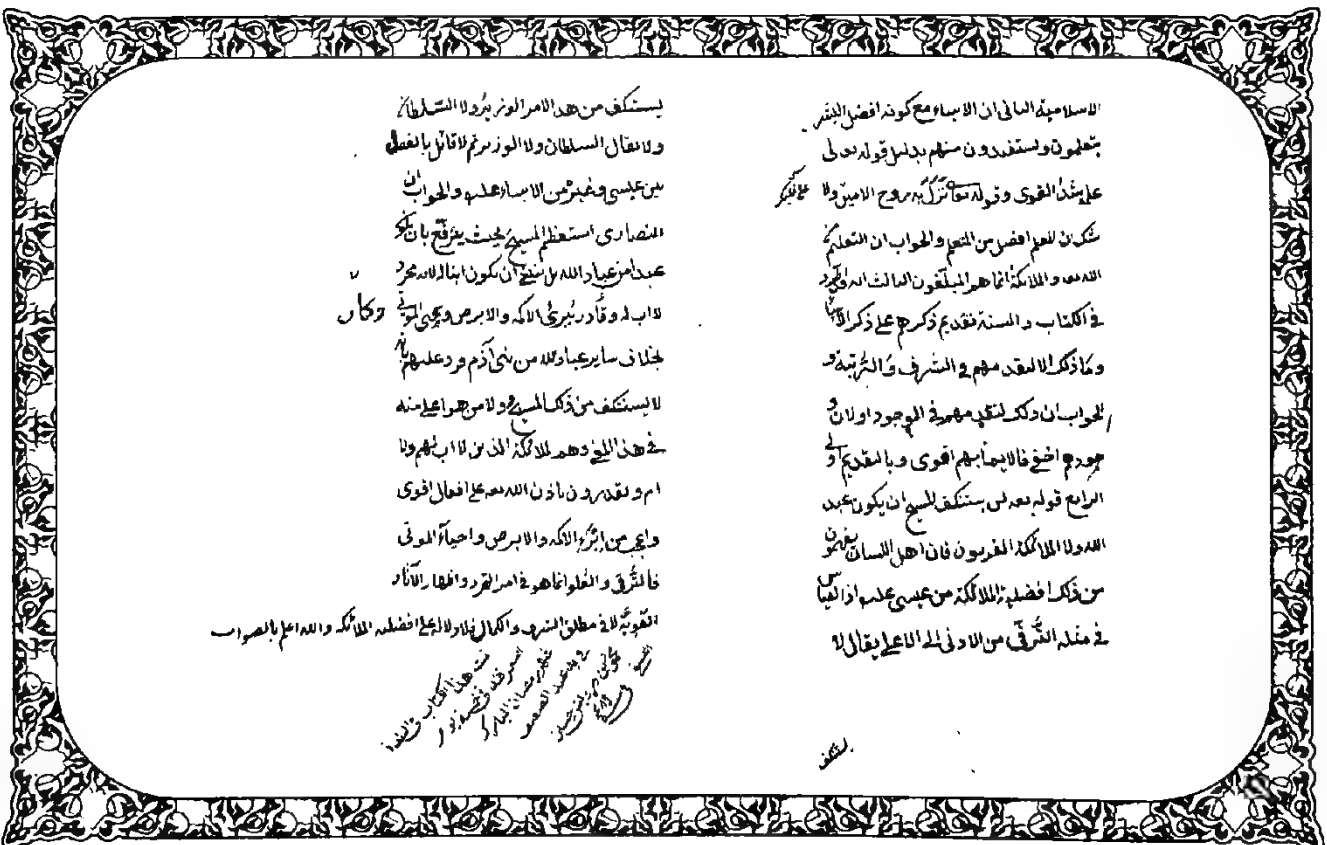 الاسلامية الثانى ان الانبياء مع كونه افضل البشر
يتعلمون ويستفيدون منهم بدليل قوله تعالى
علمه شديد القوى وقوله تعا نَزَلَ به روح الامين ولا
على قلبك
شك ان المعلم افضل من المتعلم والجواب ان التعلم من
الله تعه والملائكة انما هم المبلغون الثالث انه قد اطرد
فى الكتاب والسنة تقديم ذكرهم على ذكر الانبيا
وما ذلك الا لتقدمهم فى الشرف والرُّتبة و
الجواب ان ذلك لتقدمهم فى الوجود او لان و
جودهم اخفى فالايمان بهم اقوى وبالتقديم اولى
الرابع قوله تعه لن يستنكف المسيح ان يكون عبد
الله ولا الملائكة المقربون فان اهل اللسان يفهمون
من ذلك افضلية الملائكة من عيسى عليه اذ القياس
فى مثله التَّرقّى من الادنى الى الاعلى يقال لا
يستنكف
يستنكف من هذا الامر الوزيرُ ولا السّلطان
ولا يقال السلطان ولا الوزير ثم لا قائل بالفصل
بين عيسى وغيرِه من الانبياء عليه والجواب ان
النصارى استعظم المسيح بحيث يترفّع بان يكو
عبدا من عباد الله بل ينبغى ان يكون ابنا له لانه مجرد
لا اب له وقادر يُبرئ الاكمه والابرص ويحيى الموتى
وكان
بخلاف ساير عباد الله من بنى آدم فرد عليهم بانه
لا يستنكف من ذلك المسيح ولا من هو اعلى منه
فى هذا المعنى وهم الملائكة الذين لا اب لهم ولا
ام ويقدرون باذن الله تعه على افعال اقوى
واعجب من ابْرَاء الاكمه والابرص واحياء الموتى
فالتَّرقى والعُلوّ انما هو فى امر التجرد واظهار الآثار
القويّة لا فى مطلق الشرف والكمال فلا دلالة على افضلية الملائكة والله اعلم بالصواب
تمت هذا الكتاب
فى
شهر رمضان المبارك